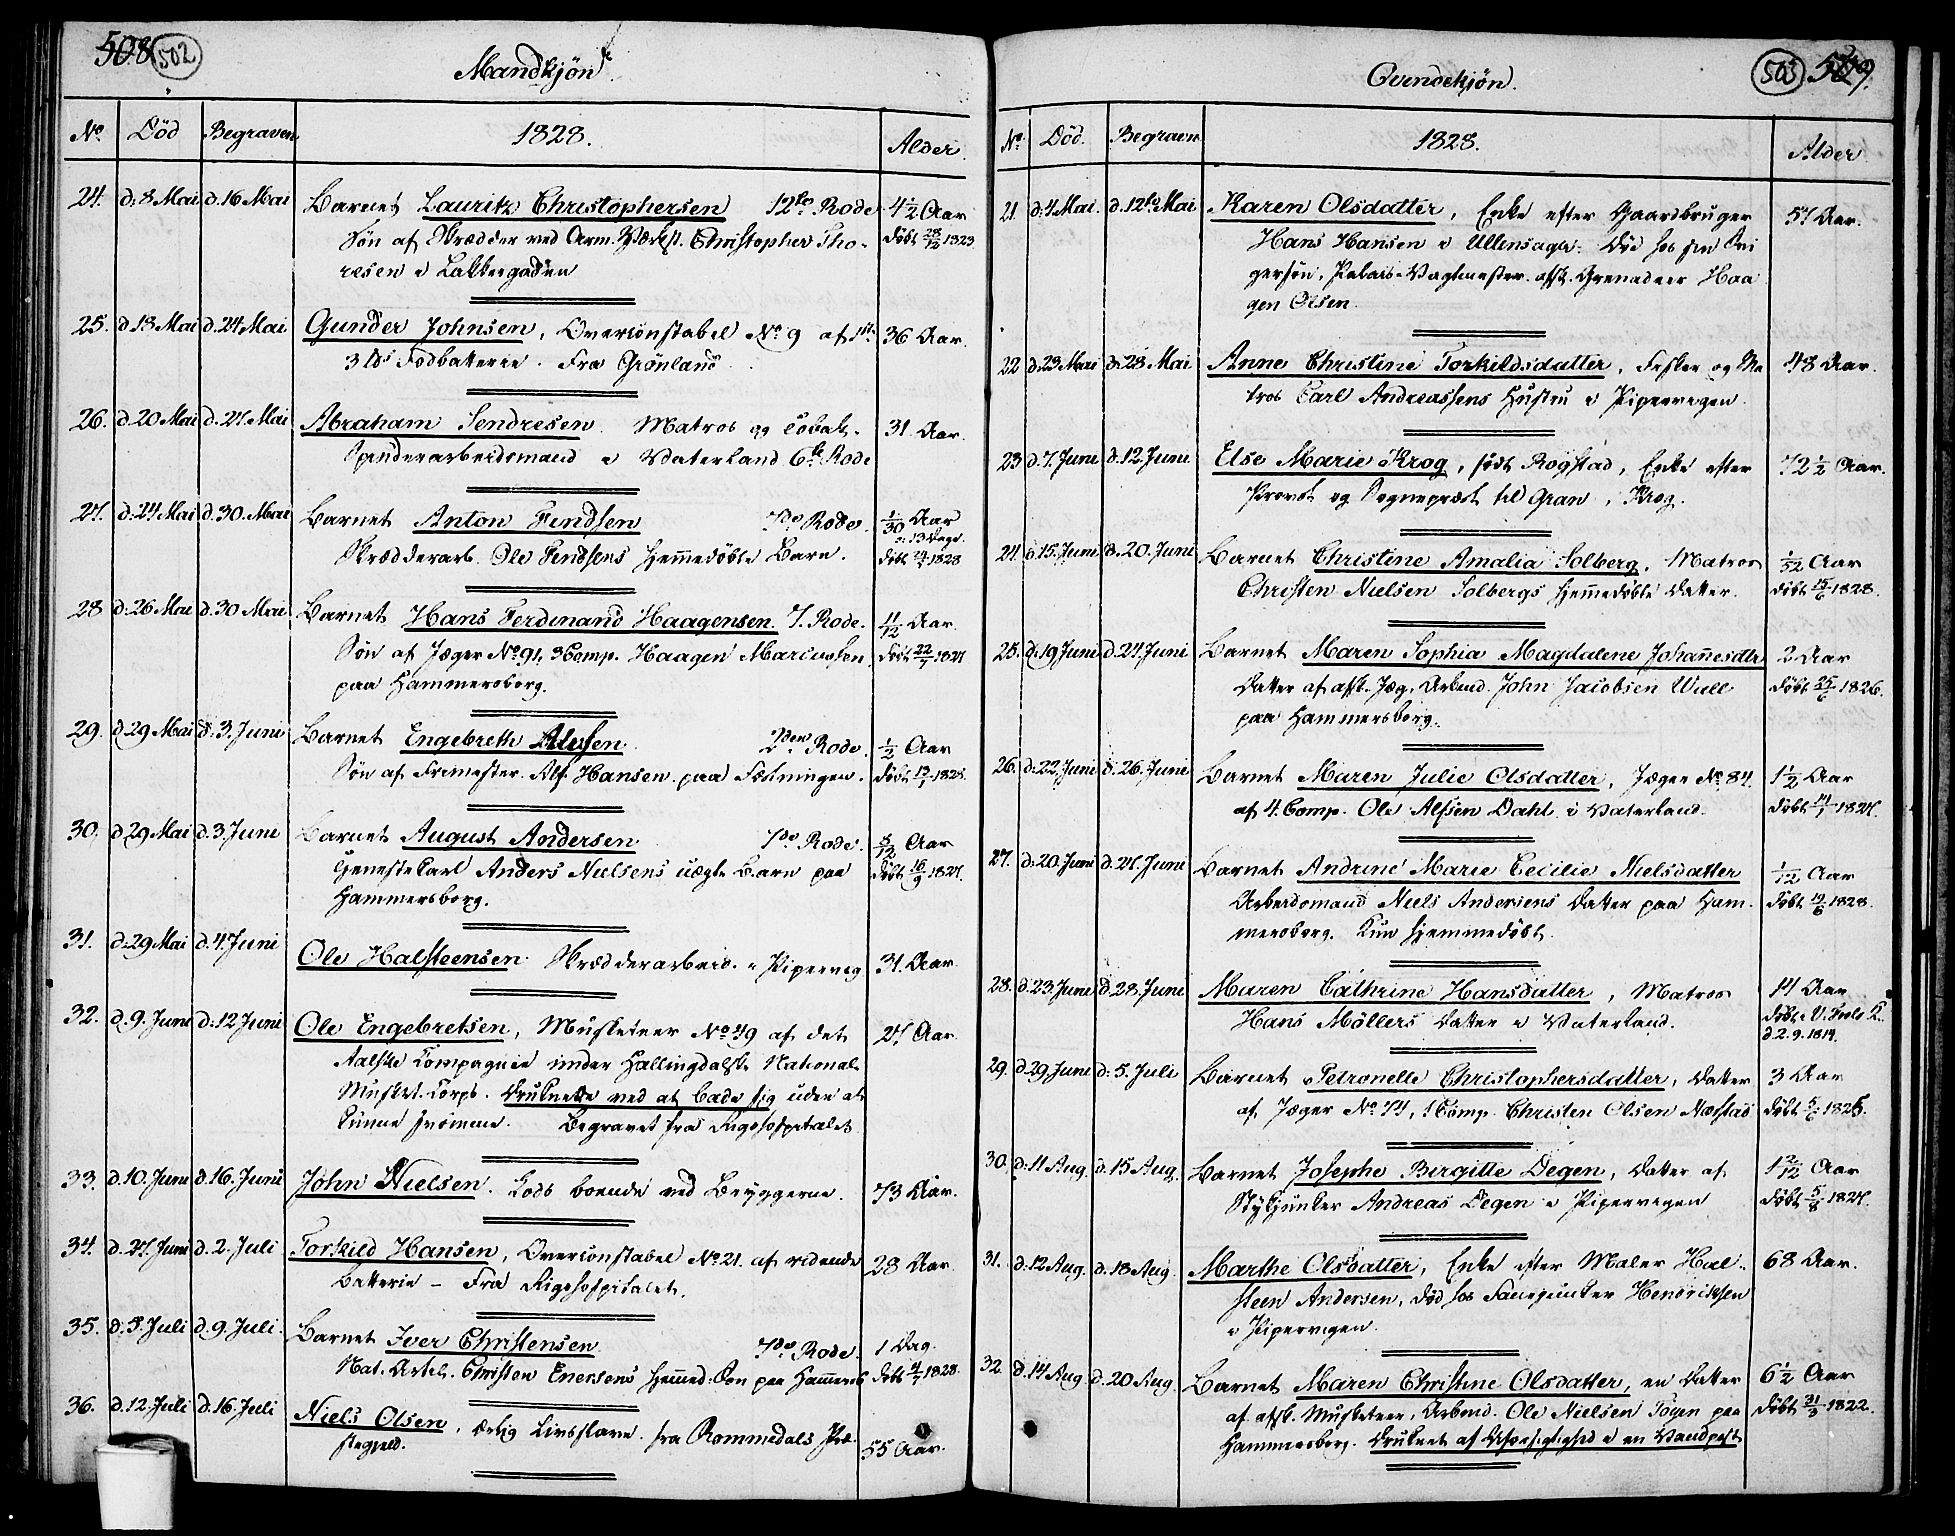 508 502
Mandkjøn.
No. Død Begraven 1828. Alder.
24. d. 8 Mai d. 16 Mai Barnet Lauritz Christophersen 12te Rode 4½ Aar
Søn af Skrædder ved Arm. Værkst. Christopher Tho- døbt 28/12 1823
resen i Lakkergaden
25. d. 18 Mai d. 24 Mai Gunder Johnsen, Overconstabel No. 9 af 36 Aar.
3 Fodbatterie. Fra Grønland
26. d. 20 Mai d. 27. Mai Abraham Sendresen. Matros og Tobak- 31 Aar.
Spinderarbeidsmand i Vaterland 6te Rode
27. d. 24 Mai d. 30. Mai Barnet Anton Findsen 7de Rode. 1/30 Aar
Skrædderarb. Ole Findsens hjemmedøbte Barn. døbt 1828
28 d. 26 Mai d. 30 Mai Barnet Hans Ferdinand Haagensen. 7. Rode. 11/12 Aar.
Søn af Jæger No. 91, 3 Comp. Haagen Marcussen døbt 22/7 1827
paa Hammersborg.
29. d. 29 Mai d. 3. Juni Barnet Engebreth Alfsen. 2den Rode. ½ Aar
Søn af Frimester Alf Hansen paa Fæstningen. døbt 1828.
30. d. 29 Mai d. 3. Juni Barnet August Andersen 7de Rode. 8/12 Aar
Tjenestekarl Anders Nielsens uægte Barn paa døbt 16/9 1827.
Hammersborg.
31. d. 29 Mai d. 4. Juni Ole Halsteensen. Skrædderarbeid. i Pipervig 31. Aar.
32. d. 9. Juni d. 12 Juni Ole Engebretsen, Musketeer No. 49 af det 27 Aar.
Aalske Compagnie under Hallingdalske National-
Musket. Corps. Druknede ved at bade sig uden at
kunne svømme. Begravet fra Rigshospitalet
33. d. 10. Juni d. 16. Juni John Nielsen. Lods boende ved Bryggerne. 73 Aar.
34. d. 27. Juni d. 2. Juli Torkild Hansen, Overconstabel No. 21. af ridende 28 Aar.
Batterie – Fra Rigshospitalet.
35. d. 8. Juli d. 9. Juli. Barnet Iver Christensen 7de Rode. 1 Dag.
Nat. Artil. Christen Enersens hjemmed. Søn paa Hammersb døbt 1828.
36. d. 12. Juli d. 16. Juli Niels Olsen, ærlig Livsslave. fra Rommedals Præ-
stegjeld. 55 Aar.
Qvindekjøn.
503 509.
No. Død. Begraven 1828. Alder
21. d. 4 Mai. d. 12te Mai Karen Olsdatter, Enke efter Gaardbruger 57 Aar.
Hans Hansen i Ullensager. Død hos sin Svi
gersøn, Palais-Vagtmester afsk. Grenadeer Haa
gen Olsen.
22 d. 23 Mai d. 28 Mai Anne Christine Torkildsdatter, Fisker og Ma 48 Aar.
tros Carl Andreassens Hustru i Pipervigen.
23 d. 7. Juni d. 12. Juni Else Marie Krog, født Rogstad, Enke efter 72½ Aar.
Provst og Sognepræst til Gran, Krog.
24. d. 15. Juni d. 20. Juni Barnet Christine Amalia Solberg. Matros 1/52 Aar
Christen Nielsen Solbergs hjemmedøbte Datter. døbt 15/6 1828.
25. d. 19 Juni d. 24. Juni Barnet Maren Sophia Magdalene Johannesdtr 2 Aar
Datter af afsk. Jæg. Arbmd. John Jacobsen Wall døbt 25/6 1826.
paa Hammersborg.
26. d. 22. Juni d. 26. Juni Barnet Maren Julie Olsdatter, Jæger No. 84. 1½ Aar
af 4. Comp. Ole Alfsen Dahl i Vaterland. døbt 14/1 1827.
27. d. 20. Juni d. 27. Juni Barnet Andrine Marie Cecilie Nielsdatter 1/12 Aar
Arbeidsmand Niels Andersens Datter paa Ham- døbt 19/6 1828.
mersborg. Kun hjemmedøbt.
28. d. 23. Juni d. 28. Juni Maren Cathrine Hansdatter, Matros 14 Aar
Hans Möllers Datter i Vaterland. døbt i V. Frels K.
d. 2. 9. 1814.
29. d. 29 Juni d. 5. Juli Barnet Petronelle Christophersdatter, Datter 3 Aar
af Jæger No. 74, 1 Comp. Christen Olsen Næstad døbt 5/6 1825.
30. d. 11 Aug. d. 15 Aug. Barnet Josephe Birgitte Degen, Datter af 1 2/12 Aar
Stykjunker Andreas Degen i Pipervigen døbt 5/8 1827.
31. d. 12 Aug. d. 18 Aug. Marthe Olsdatter, Enke efter Maler Hal- 68 Aar.
steen Andersen, død hos Fanejunker Hendriksen
i Pipervigen.
32 d. 14 Aug d. 20 Aug. Barnet Maren Christine Olsdatter, en Datter 6½ Aar
af afsk. Musketeer, Arbmd. Ole Nielsen Togen paa døbt 31/3 1822.
Hammersborg. Druknet af Uforsigtighed i en Vandpost